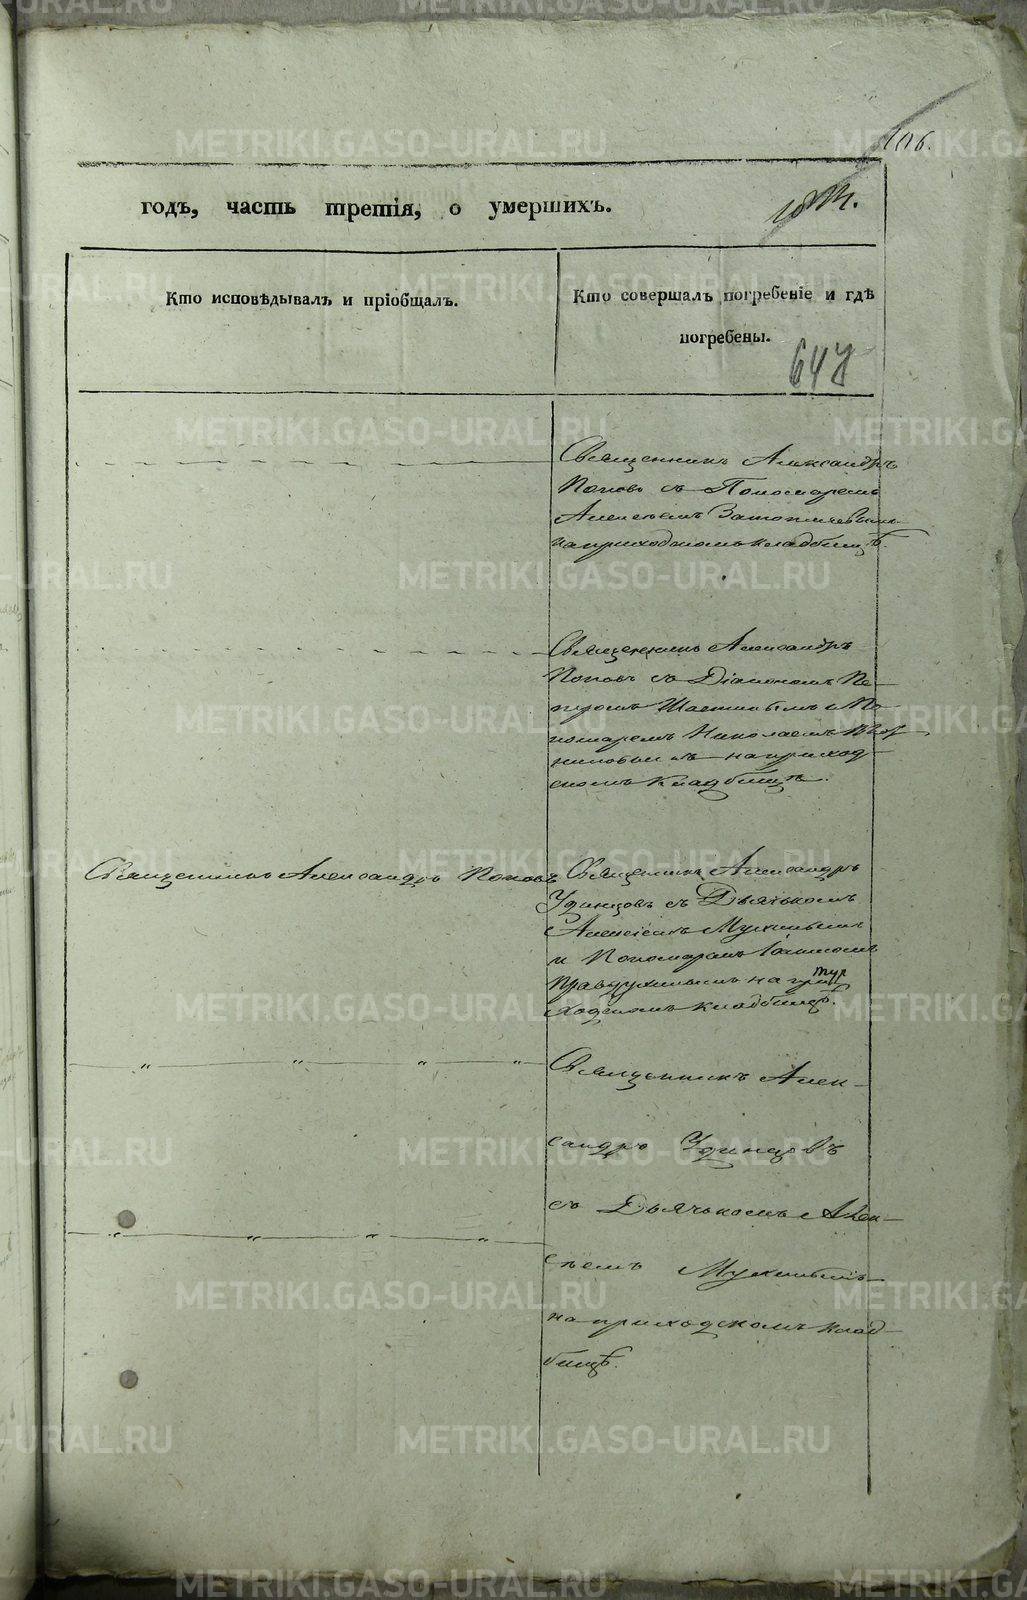 106.
годъ, часть третія, о умершихъ.
Кто исповѣдывалъ и пріобщалъ.
Кто совершалъ погребеніе и гдѣ
погребены.
647
Священникъ Александръ
Поповъ съ Пономаремъ
Алексѣемъ
на приходскомъ кладбищѣ.
Священникъ Александръ
Поповъ съ Діакономъ Пе-
тромъ и По-
номаремъ Николаемъ
на приход-
скомъ кладбищѣ.
Священникъ Александръ Поповъ
Священникъ Александръ
Удинцовъ съ Дьячькомъ
Алексіемъ Мухинымъ
и Пономаремъ Іоанномъ
на при
ходскомъ кладбищѣ.
Священникъ Алек-
сандръ Удинцовъ
съ Дьячькомъ Алек-
сѣемъ Мухинымъ
на приходскомъ клад-
бищѣ.
METRIKI.GASO-URAL.RU